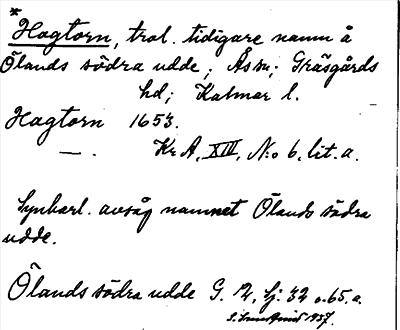 *Hagtorn, trol. tidigare namn å
Ölands södra udde; Ås sn; Gräsgårds
hd; Kalmar l.
Hagtorn 1653.
— . Kr A, XIII, N:o 6, lit. a.
Synbarl. avsåg namnet Ölands södra
udde.
Ölands södra udde G. 12, Sj. 32 o. 65. a.
1937.